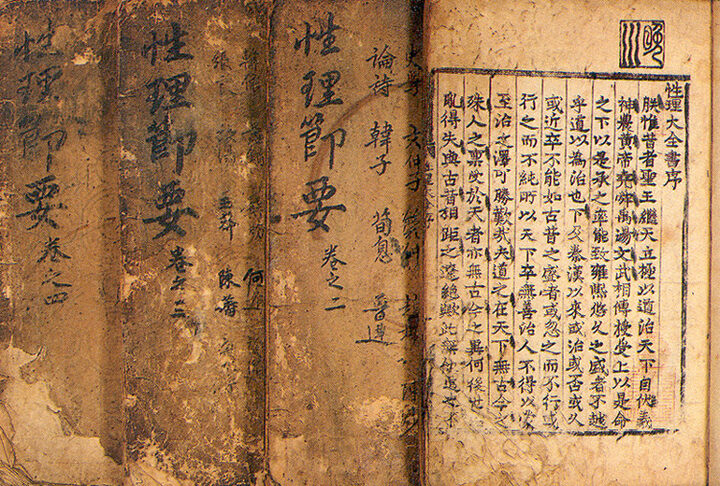 性理大全書序
朕惟昔者聖王繼天立極以道治天下自伏羲
神農黃帝堯舜禹湯文武相傳授受上以是命
之下以是承之率能致雍熙悠久之盛者不越
乎道以為治也下及秦漢以來或治或否或久
或近卒不能如古昔之盛者或忽之而不行或
行之而不純所以天下卒無善治人不得以蒙
至治之澤可勝歎哉夫道之在天下無古今之
殊人之稟受於天者亦無古今之異何後世
亂得失與古昔相距之遼絕歟此
論詩 韓子 荀息
性理節要 卷之二
王 陳
性理節要 卷之三
性理節要 卷之四